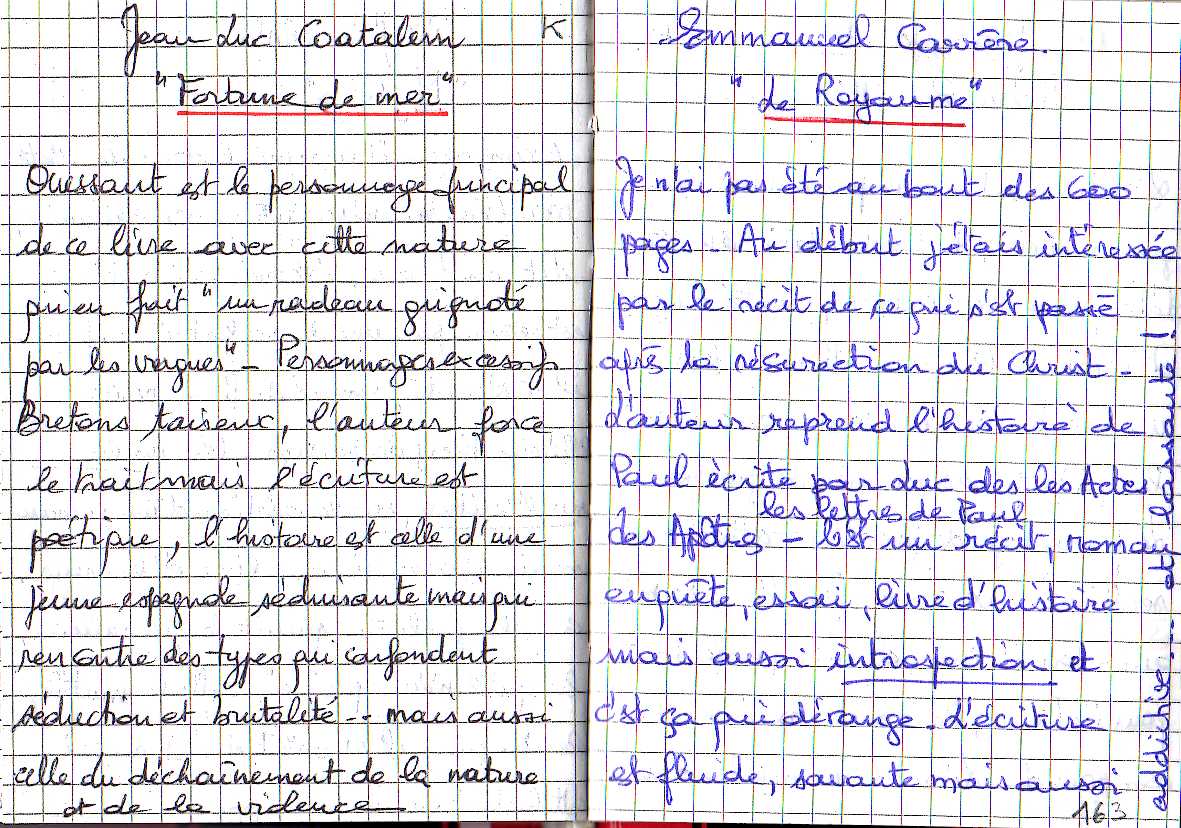 Jean-Luc Coatalem K
"Fortune de mer"
Ouessant est le personnage principal
de ce livre avec cette nature
qui en fait "un radeau grignoté
par les vagues" - Personnages excessifs
Bretons taiseux, l'auteur force
le trait mais l'écriture est
poétique, l'histoire est celle d'une
jeune espagnole séduisante mais qui
rencontre des types qui confondent
séduction et brutalité -- mais aussi
celle du déchaînement de la nature
et de la violence
Emmanuel Carrère.
"Le Royaume"
Je n'ai pas été au bout des 600
pages - Au début j'étais intéressée
par le récit de ce qui s'est passé
après la résurection du Christ -
L'auteur reprend l'histoire de
Paul écrite par Luc des les Actes
les lettres de Paul
des Apôtres - C'est un récit, roman
enquête, essai, livre d'histoire
mais aussi introspection et
c'est ça qui dérange - L'écriture
est fluide, savante mais aussi
addictive --- et lassante !
163